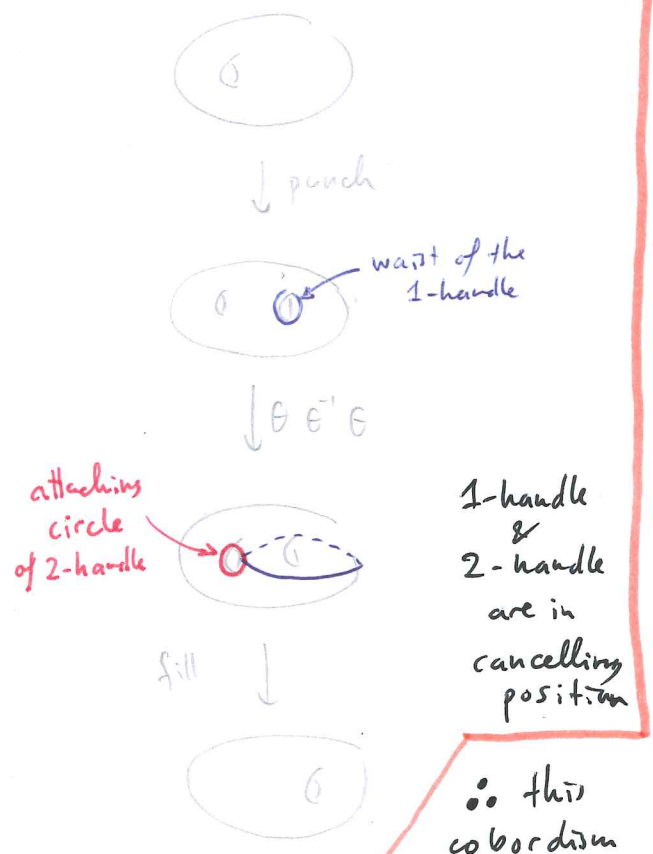 punch
waist of the
1-handle
θ θ⁻¹ θ
attaching
circle
of 2-handle
1-handle
&
2-handle
are in
cancelling
position
fill
∴ this
cobordism